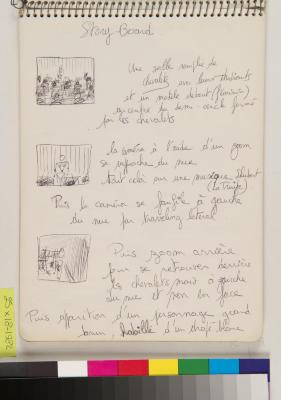 Story-Board
Une salle remplie de
chevalets avec leurs étudiants
et un modèle debout (féminin)
qui occupe le demi-cercle formé
par les chevalets
la caméra à l'aide d'un zoom
se rapproche du nue
tout cela sur une musique Shubert
(La Truite)
Puis la caméra se faufile à gauche
du nue par traveling latéral
Puis zoom arrière
pour se retrouver derrière
les chevalets mais à gauche
du nue et non en face
Puis apparition d'un personnage grand
brun, habillé d'un drap blanc